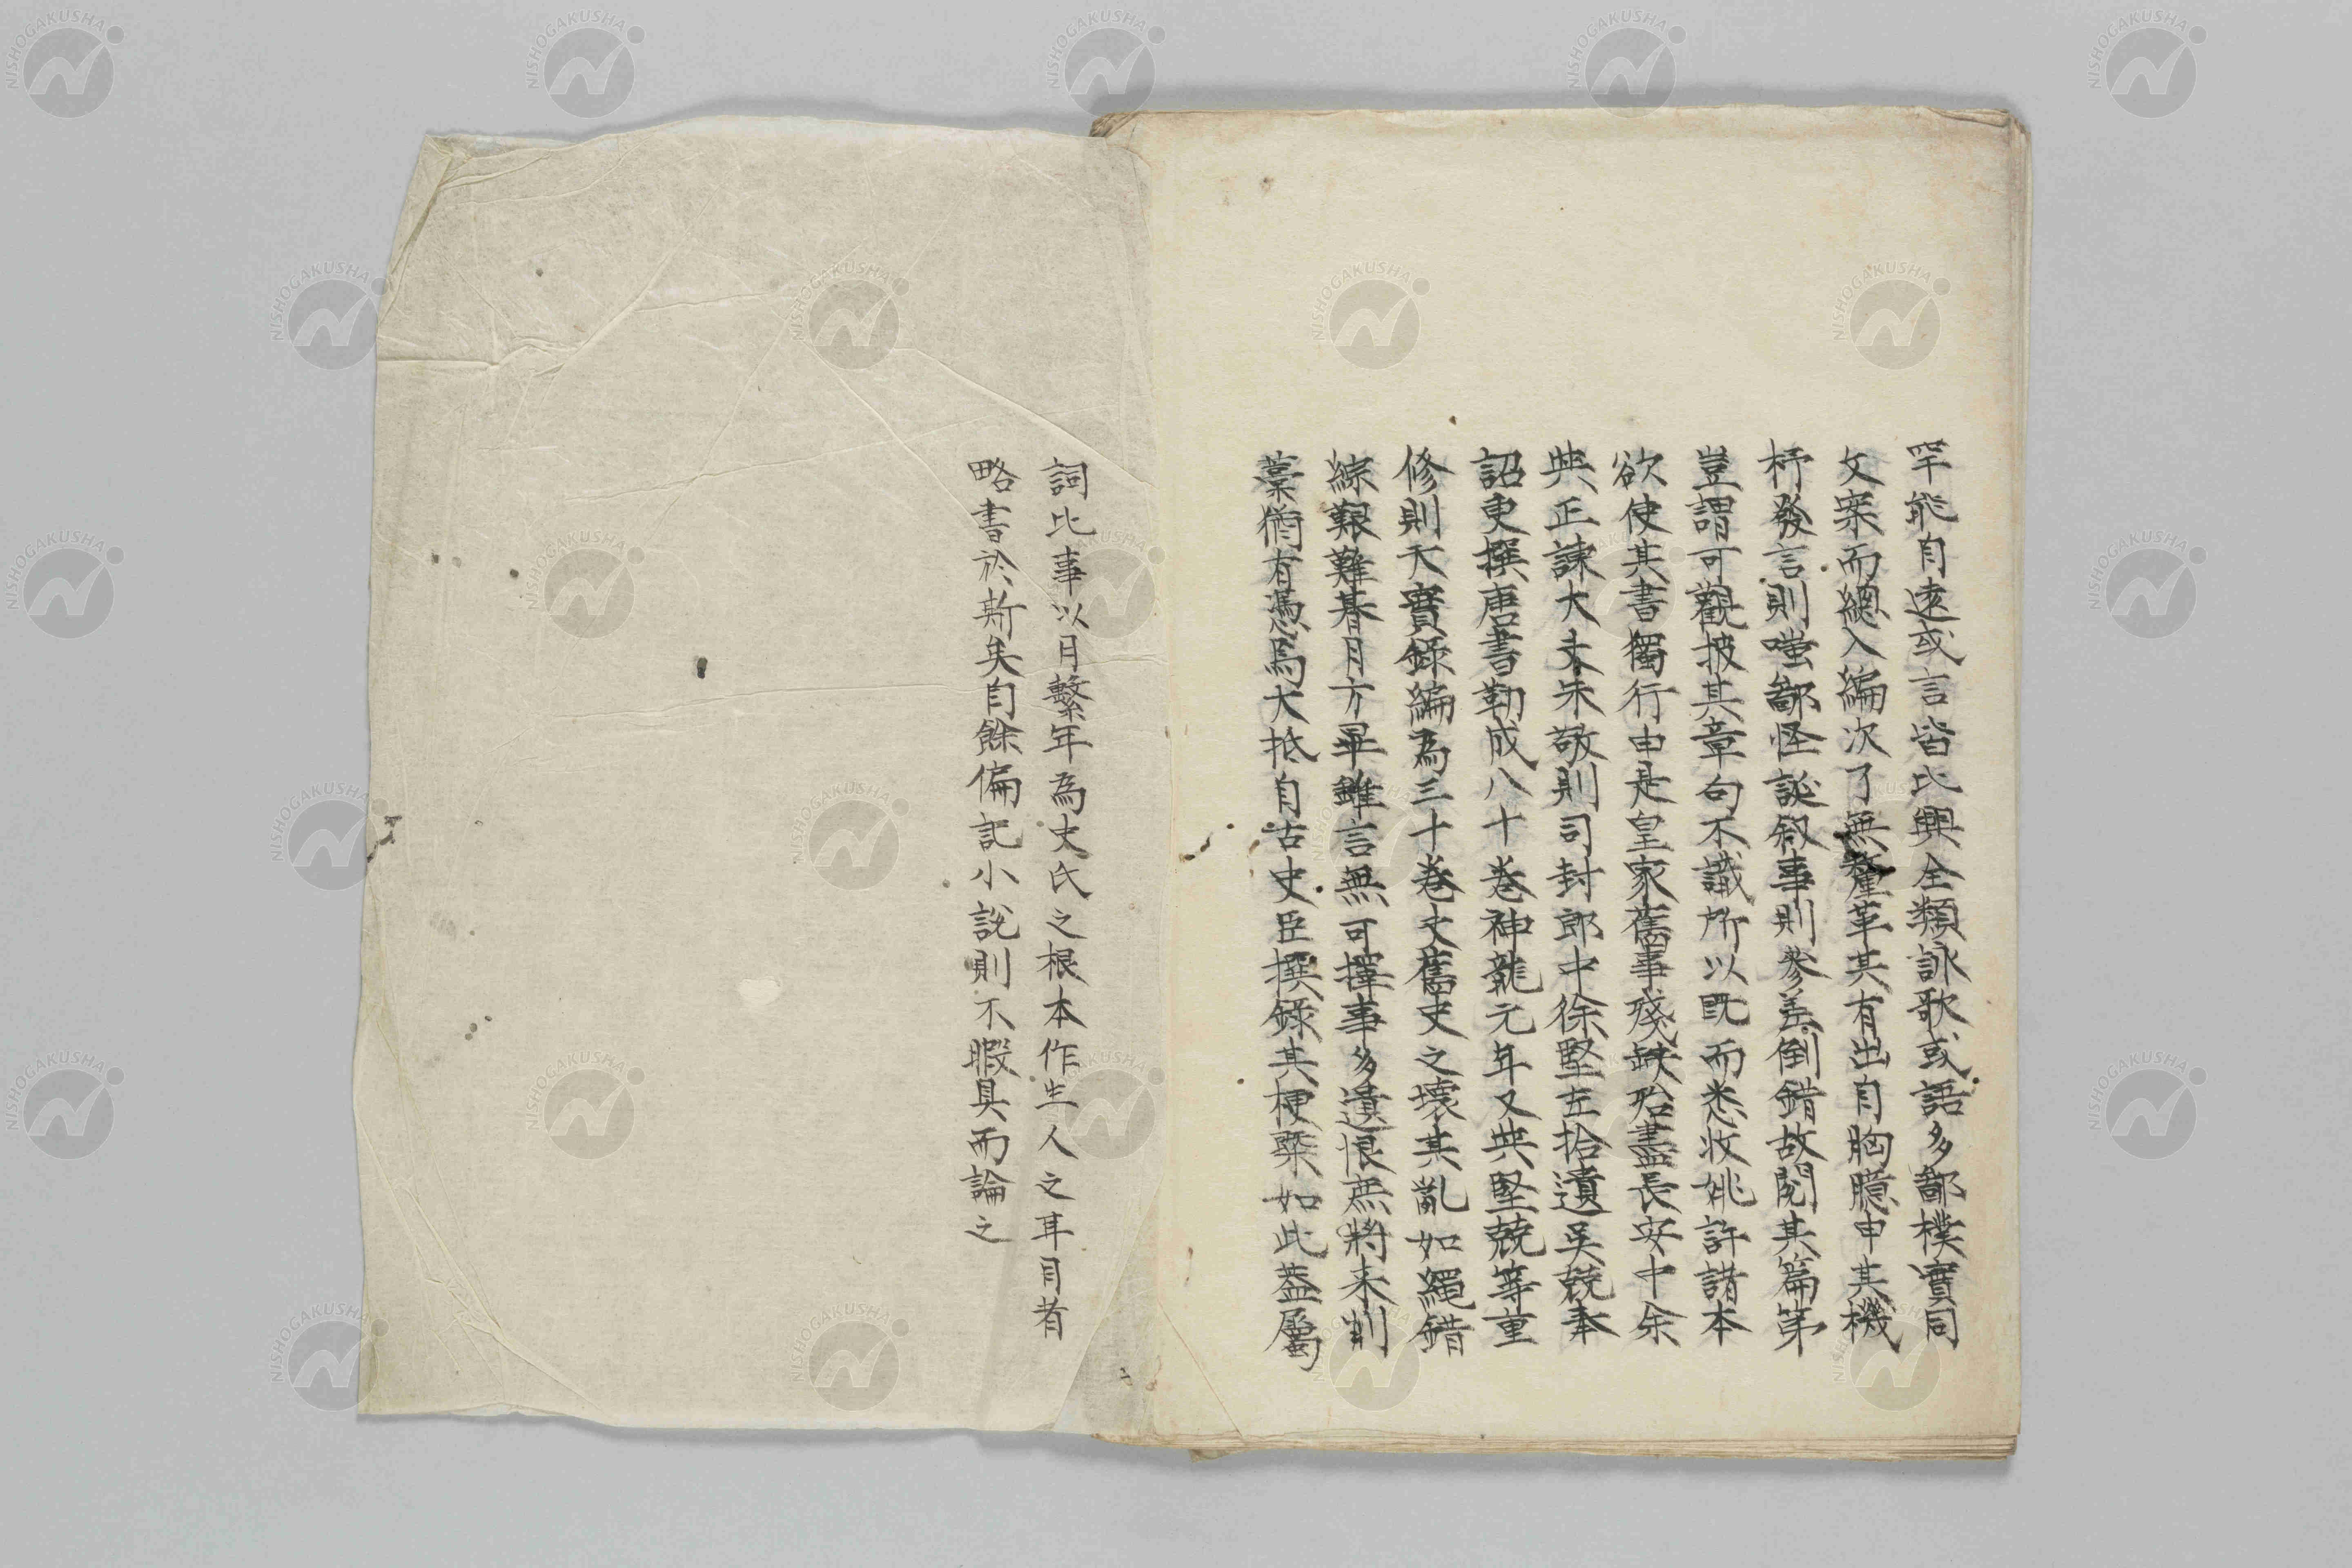 罕能自遠或言皆比興全類詠歌或語多鄙樸實同
文案而總入編次了無釐革其有出自胸臆申其機
杼發言則嗤鄙怪誕叙事則參差倒錯故閱其篇第
豈謂可觀披其章句不識所以既而悉收姚許諸本
欲使其書獨行由是皇家舊事殘缺殆盡長安中余
與正諫大夫朱敬則司封郎中徐堅左拾遺吳兢奉
詔更撰唐書勒成八十卷神龍元年又與堅兢等重
修則天實錄編為三十卷夫舊史之壞其亂如繩錯
綜艱難朞月方畢雖言無可擇事多遺恨庶將来削
藁猶有憑焉大抵自古史臣撰錄其梗槩如此蓋屬
詞比事以月繫年為史氏之根本作生人之耳目者
略書於斯矣自餘偏記小說則不暇具而論之
NISHOGAKUSHA